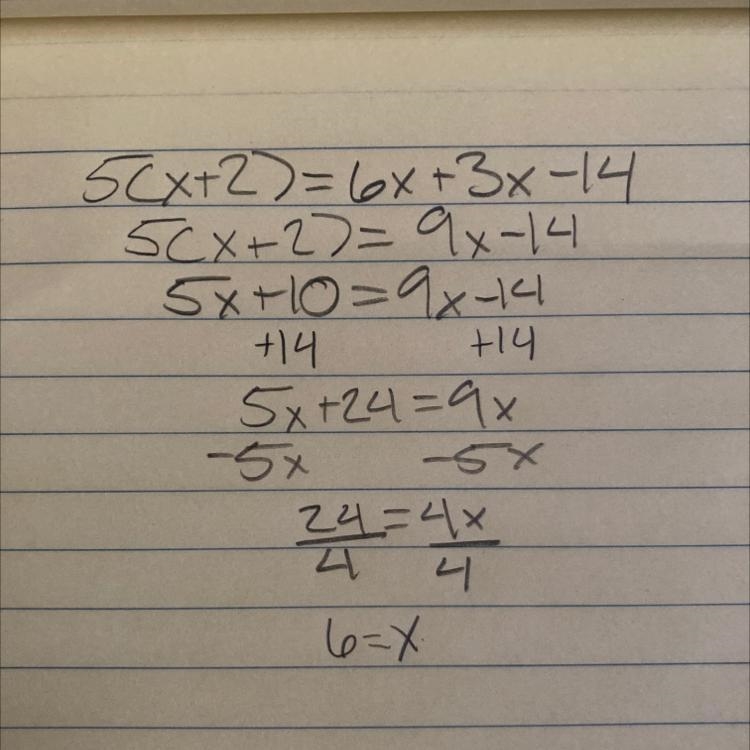 5(x+2)=6x+3x-14
5(x+2)=9x-14
5x+10=9x-14
+14 +14
5x+24=9x
-5x -5x
24=4x
4 4
6=x